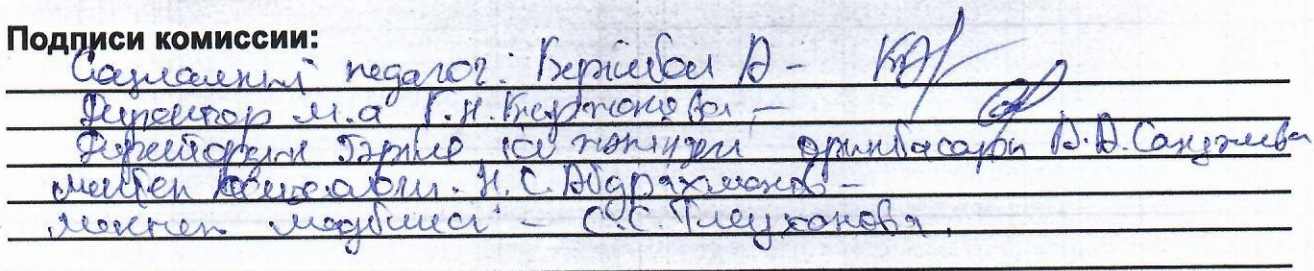 Подписи комиссии:
Социалный педагог: Бержибай А -
Директор м.а Г.Н. Каржонова -
Директордың тәрбие ісі жөніндегі орынбасары В.А. Сандыева
мектеп психологы. Н.С. Абдрахманов -
мектеп медбикесі - С.С. Тлеуханова.